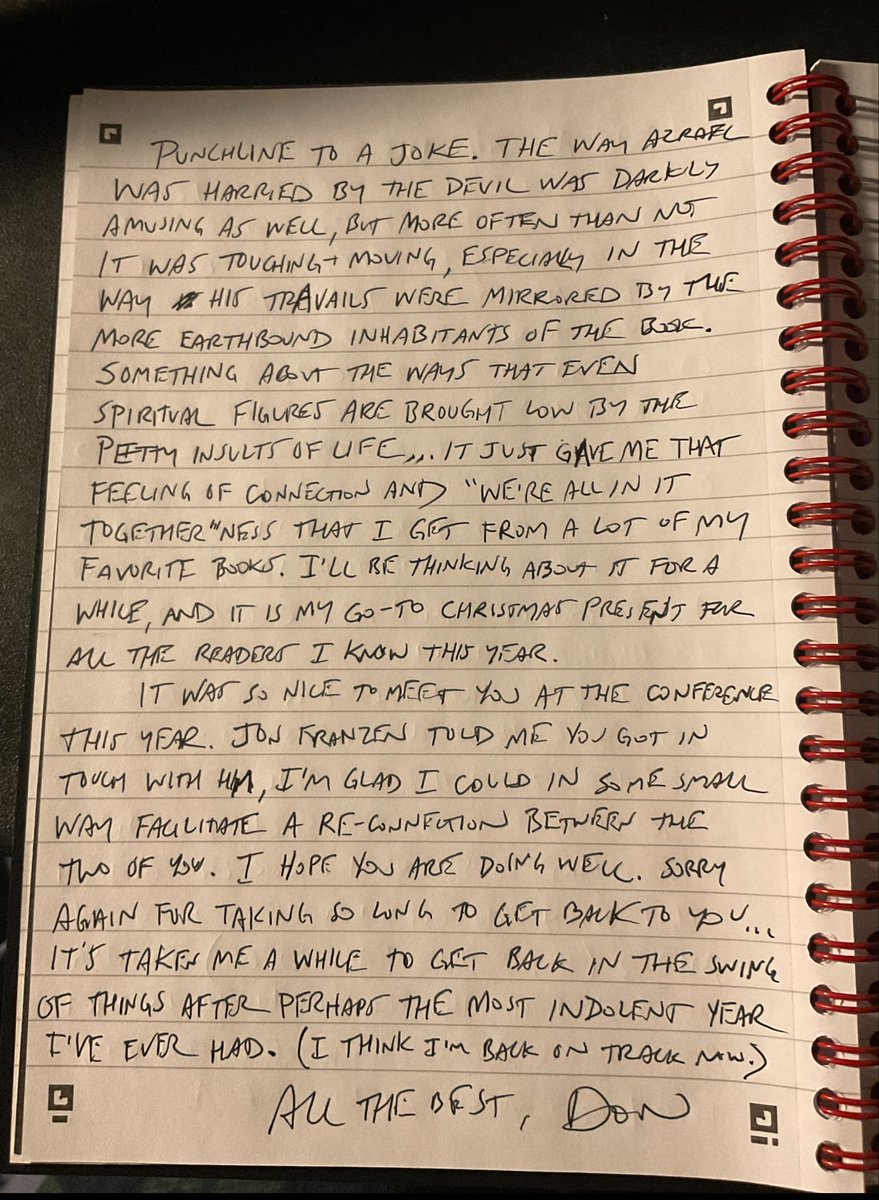 PUNCHLINE TO A JOKE. THE WAY AZRAEL
WAS HARRIED BY THE DEVIL WAS DARKLY
AMUSING AS WELL, BUT MORE OFTEN THAN NOT
IT WAS TOUCHING + MOVING, ESPECIALLY IN THE
WAY HIS TRAVAILS WERE MIRRORED BY THE
MORE EARTHBOUND INHABITANTS OF THE BOOK.
SOMETHING ABOUT THE WAYS THAT EVEN
SPIRITUAL FIGURES ARE BROUGHT LOW BY THE
PETTY INSULTS OF LIFE... IT JUST GAVE ME THAT
FEELING OF CONNECTION AND "WE'RE ALL IN IT
TOGETHER"NESS THAT I GET FROM A LOT OF MY
FAVORITE BOOKS. I'LL BE THINKING ABOUT IT FOR A
WHILE, AND IT IS MY GO-TO CHRISTMAS PRESENT FOR
ALL THE READERS I KNOW THIS YEAR.
IT WAS SO NICE TO MEET YOU AT THE CONFERENCE
THIS YEAR. JON FRANZEN TOLD ME YOU GOT IN
TOUCH WITH HIM, I'M GLAD I COULD IN SOME SMALL
WAY FACILITATE A RE-CONNECTION BETWEEN THE
TWO OF YOU. I HOPE YOU ARE DOING WELL. SORRY
AGAIN FOR TAKING SO LONG TO GET BACK TO YOU...
IT'S TAKEN ME A WHILE TO GET BACK IN THE SWING
OF THINGS AFTER PERHAPS THE MOST INDOLENT YEAR
I'VE EVER HAD. (I THINK I'M BACK ON TRACK NOW.)
ALL THE BEST, DON